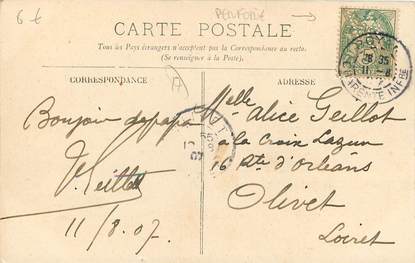 6 €
PERFORÉ →
CARTE POSTALE
Tous les Pays étrangers n'acceptent pas la Correspondance au recto.
(Se renseigner à la Poste).
CORRESPONDANCE
ADRESSE
Bonjour de papa
11/8.07.
Melle Alice Geillot
à la Croix
16 Rte d'Orléans
Olivet
Loiret